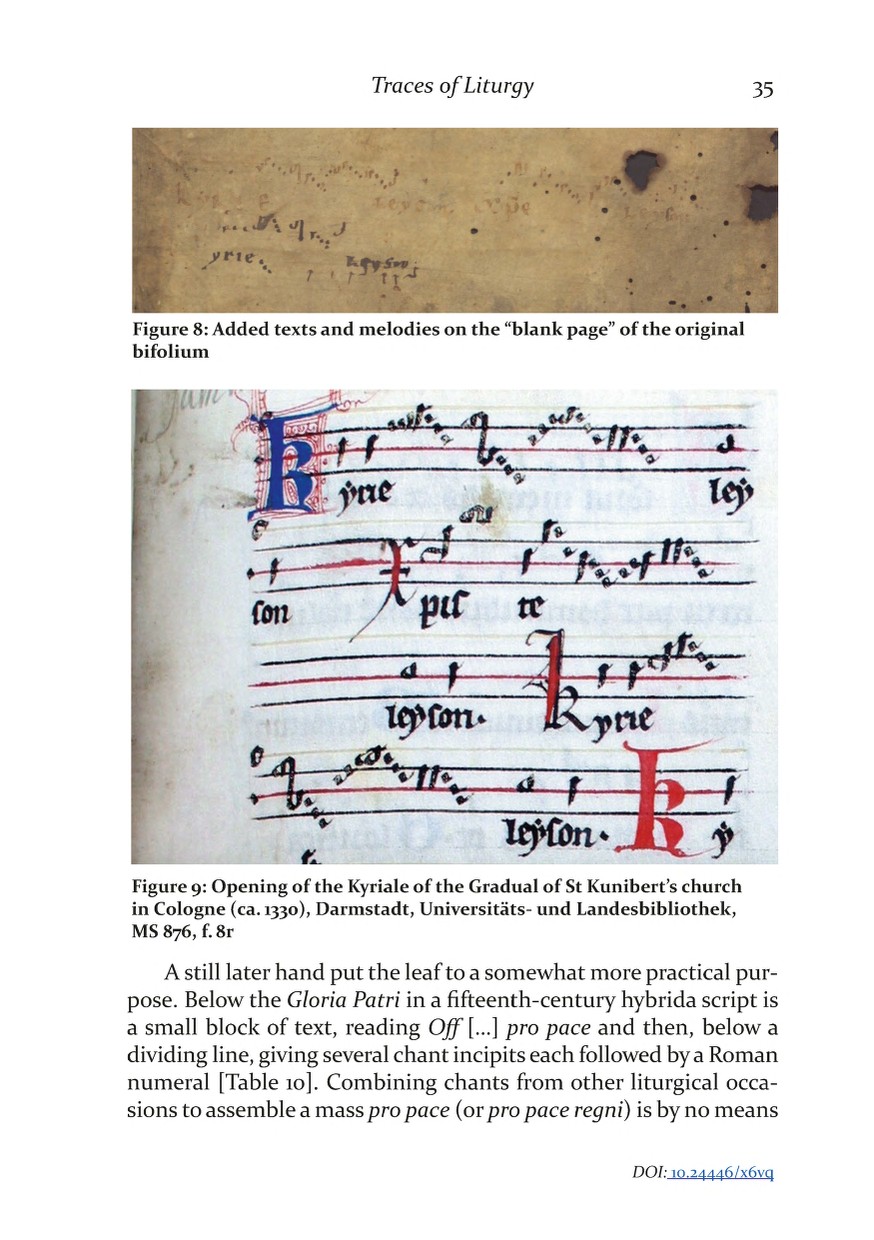 Traces of Liturgy 35
yrie leyson
Figure 8: Added texts and melodies on the “blank page” of the original
bifolium
Kÿrie leÿ
son Xpiſ te
leyſon. Kyrie
leÿſon. Kÿ
Figure 9: Opening of the Kyriale of the Gradual of St Kunibert’s church
in Cologne (ca. 1330), Darmstadt, Universitäts- und Landesbibliothek,
MS 876, f. 8r
A still later hand put the leaf to a somewhat more practical pur-
pose. Below the Gloria Patri in a fifteenth-century hybrida script is
a small block of text, reading Off [...] pro pace and then, below a
dividing line, giving several chant incipits each followed by a Roman
numeral [Table 10]. Combining chants from other liturgical occa-
sions to assemble a mass pro pace (or pro pace regni) is by no means
DOI: 10.24446/x6vq